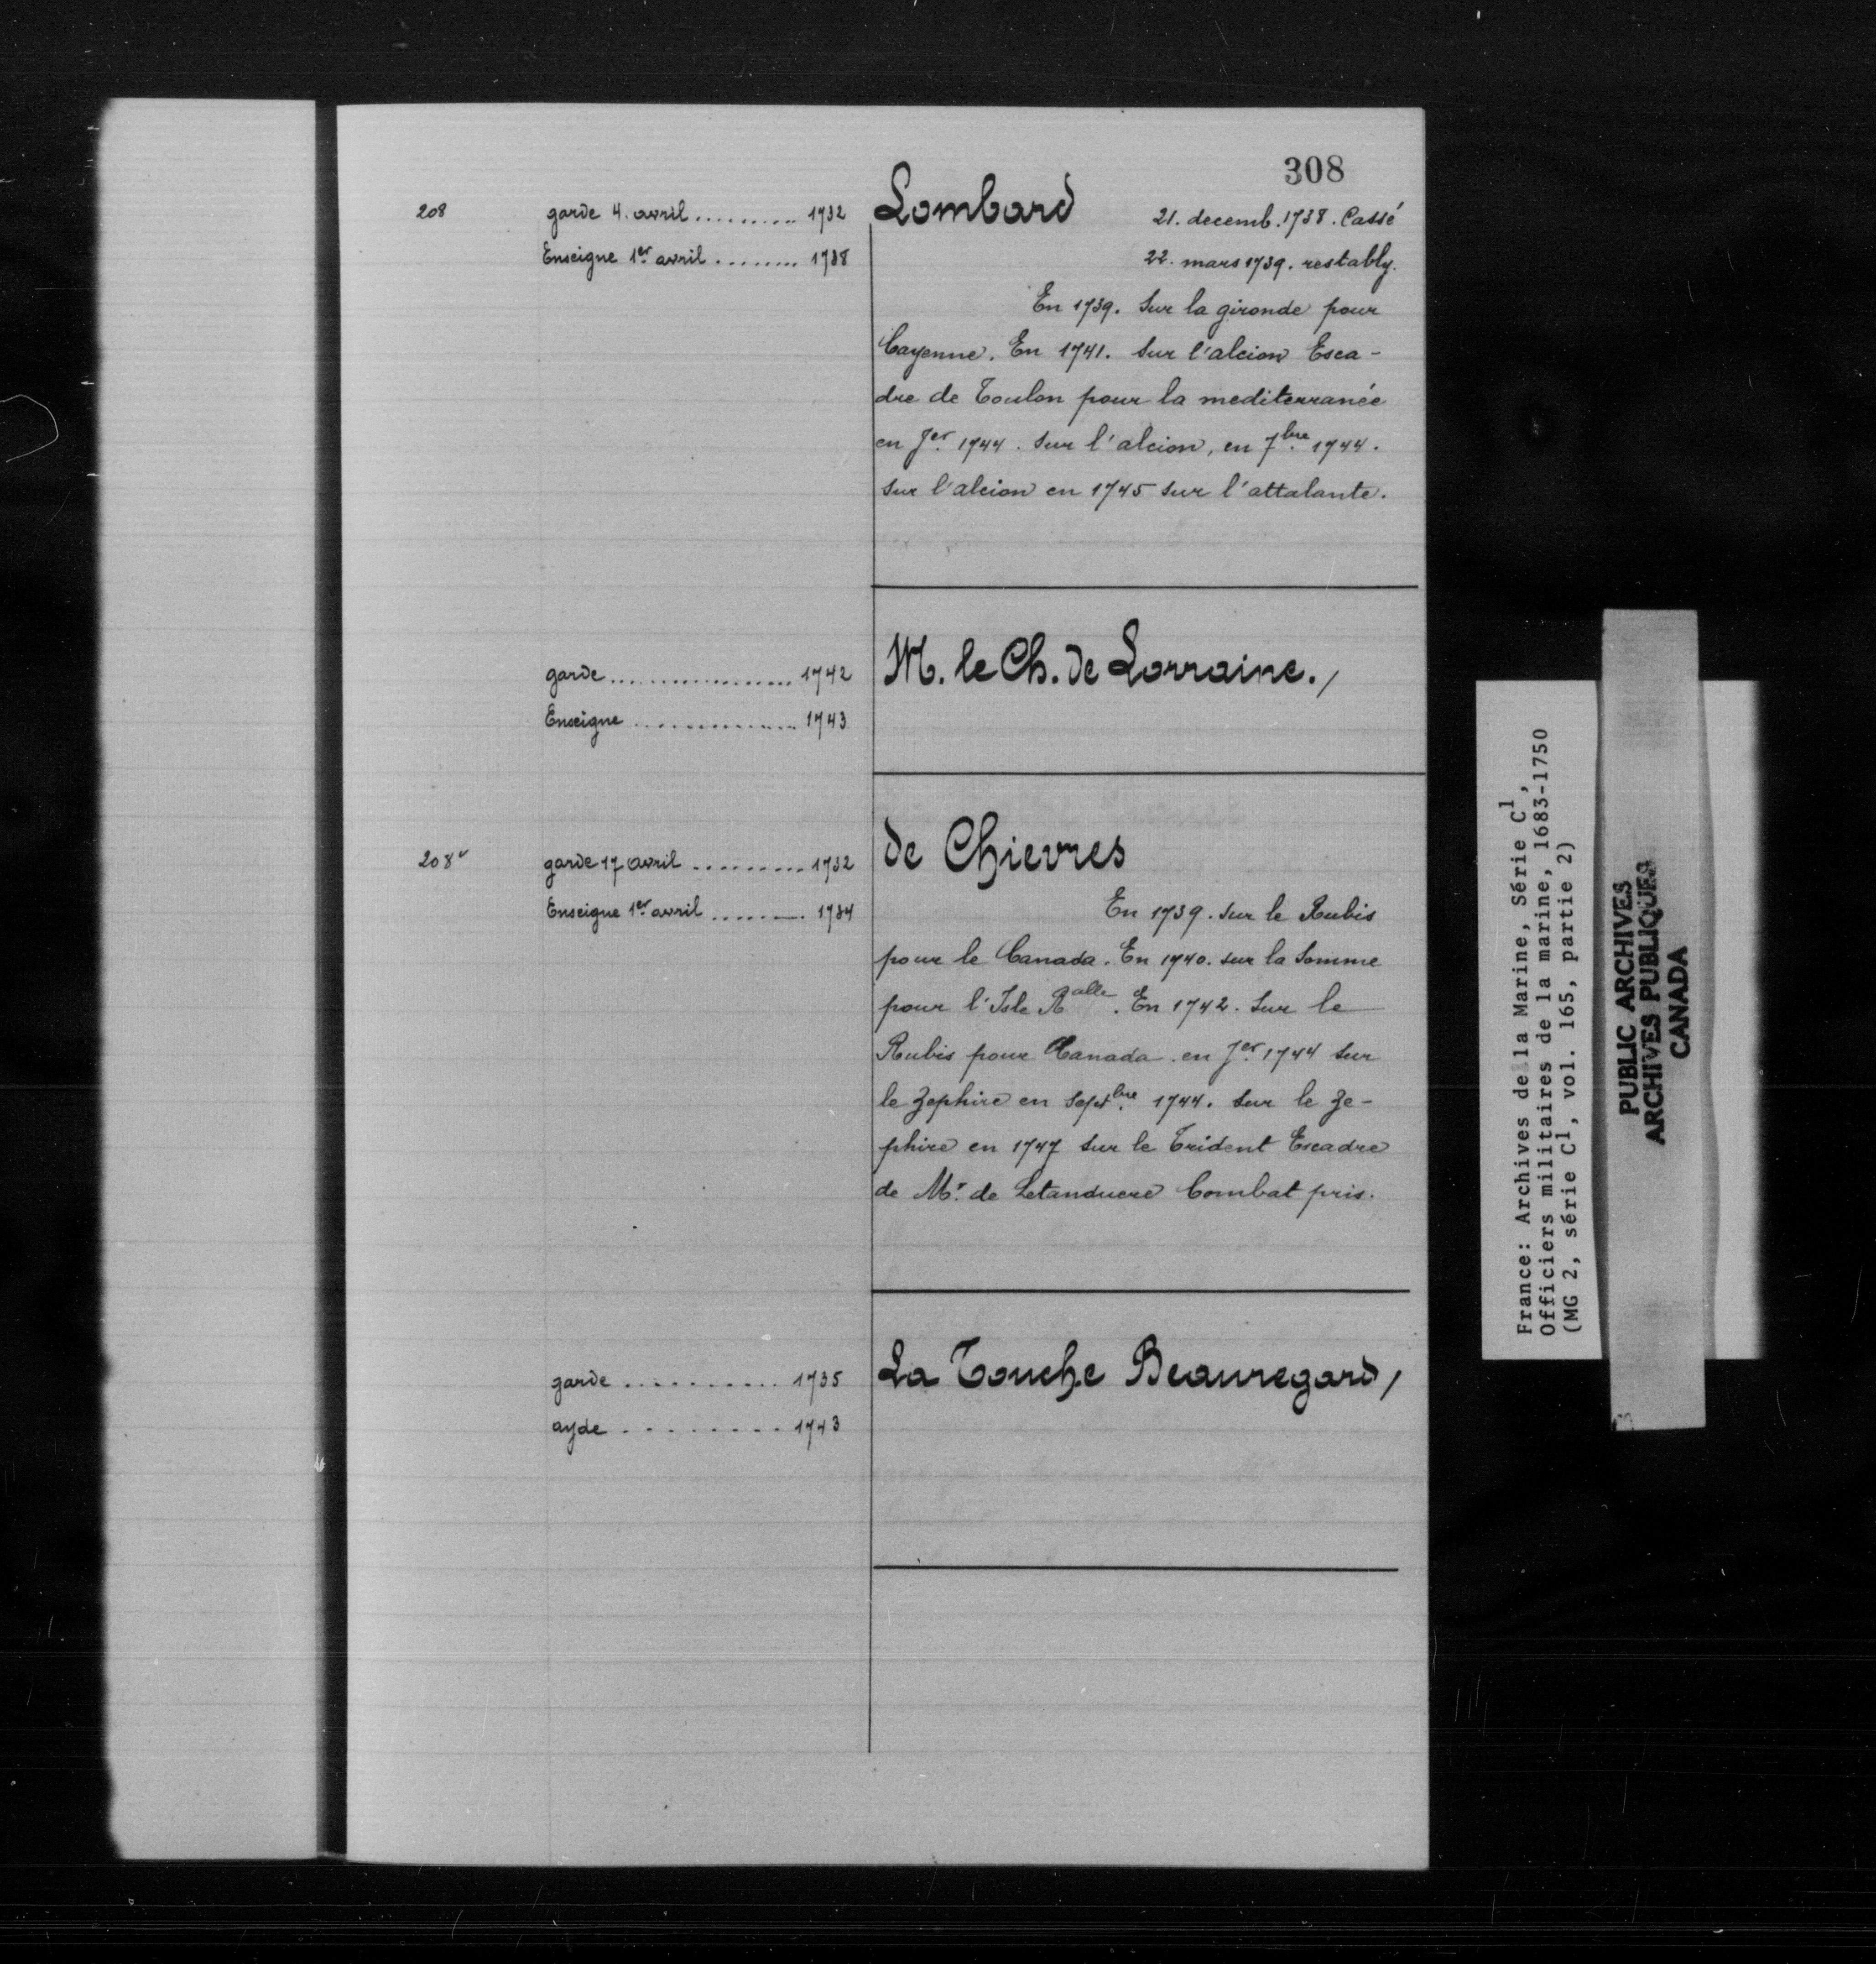 308
208 garde 4. avril .......... 1732 Lombard 21. decemb. 1738. Cassé
Enseigne 1er avril ........ 1738 22. mars 1739. restably.
En 1739. Sur la gironde pour
Cayenne. En 1741. Sur l'alcion Esca-
dre de Toulon pour la mediterranée
en Jer. 1744. Sur l'alcion, en 7bre. 1744.
sur l'alcion en 1745 sur l'attalante.
garde .................. 1742 M. le Ch. de Lorraine./
Enseigne ............... 1743
208v garde 17 avril ......... 1732 de Chievres
Enseigne 1er avril ........ 1734 En 1739. sur le Rubis
pour le Canada. En 1740. sur la Somme
pour l'Isle Ralle. En 1742. Sur le
Rubis pour Canada en Jer. 1744 sur
le Zephire en Septbre. 1744. sur le Ze-
phire en 1747 sur le Trident Escadre
de Mr. de Letanduere Combat pris.
garde .......... 1735 La Touche Beauregard/
ayde ......... 1743
France: Archives de la Marine, Série C1,
Officiers militaires de la marine, 1683-1750
(MG 2, série C1, vol. 165, partie 2)
PUBLIC ARCHIVES
ARCHIVES PUBLIQUES
CANADA